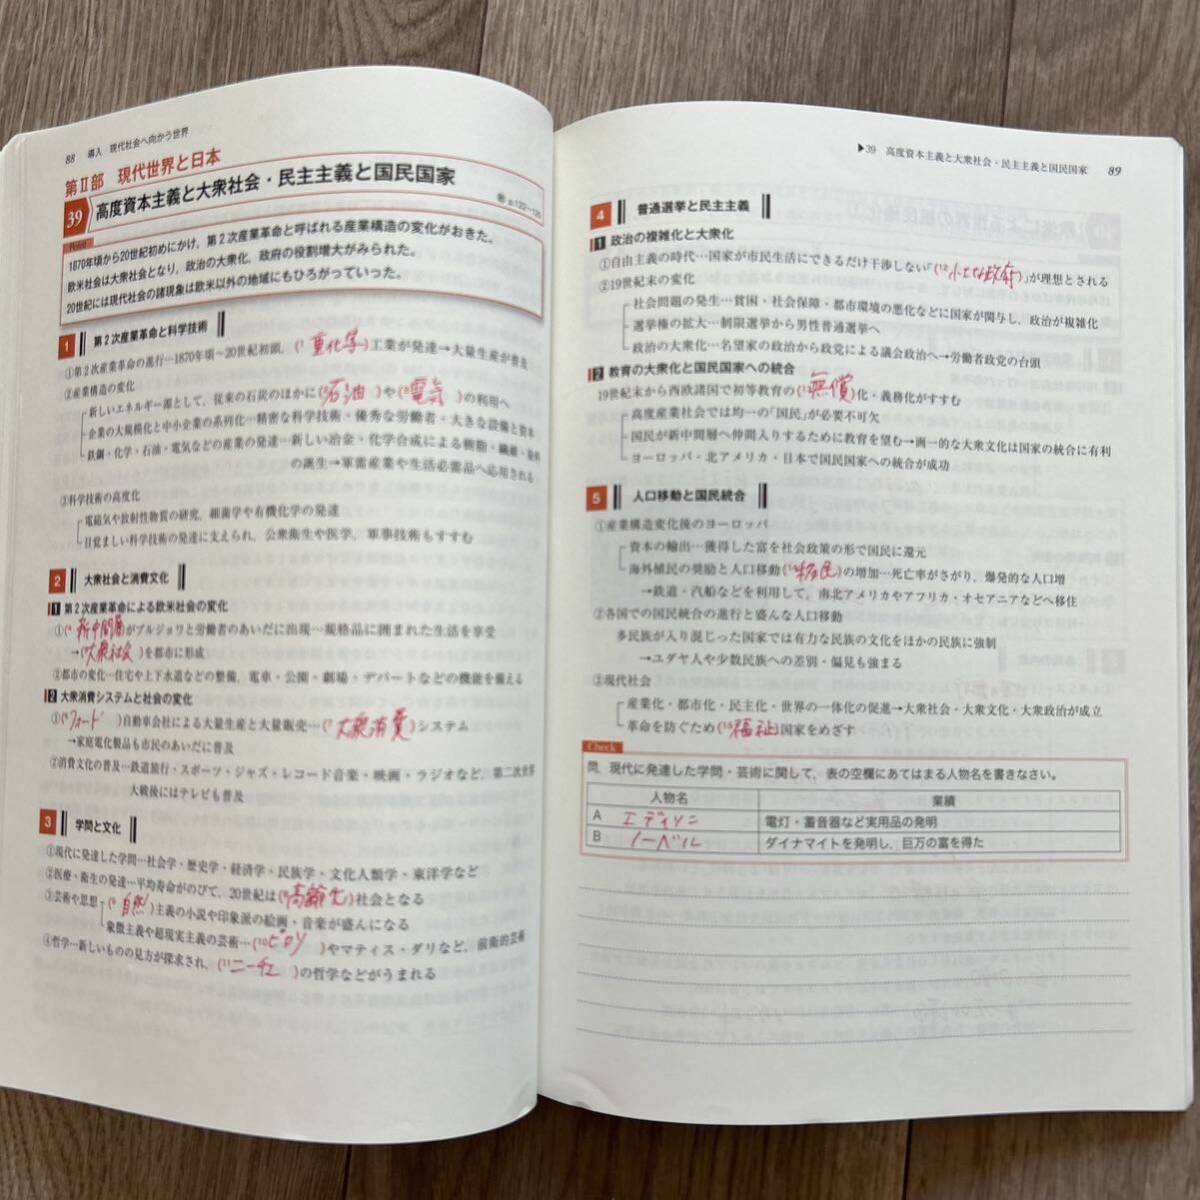 88 導入 現代社会へ向かう世界
第Ⅱ部 現代世界と日本
39 高度資本主義と大衆社会・民主主義と国民国家
p.122~125
Point
1870年頃から20世紀初めにかけ，第2次産業革命と呼ばれる産業構造の変化がおきた。
欧米社会は大衆社会となり，政治の大衆化，政府の役割増大がみられた。
20世紀には現代社会の諸現象は欧米以外の地域にもひろがっていった。
1 第2次産業革命と科学技術
①第2次産業革命の進行…1870年頃~20世紀初頭，(¹重化学)工業が発達→大量生産が普及
②産業構造の変化
新しいエネルギー源として，従来の石炭のほかに(²石油)や(³電気)の利用へ
企業の大規模化と中小企業の系列化…精密な科学技術・優秀な労働者・大きな設備と資本
鉄鋼・化学・石油・電気などの産業の発達…新しい冶金・化学合成による樹脂・繊維・染料
の誕生→軍需産業や生活必需品へ応用される
③科学技術の高度化
電磁気や放射性物質の研究，細菌学や有機化学の発達
目覚ましい科学技術の発達に支えられ，公衆衛生や医学，軍事技術もすすむ
2 大衆社会と消費文化
1 第2次産業革命による欧米社会の変化
①(⁴新中間層がブルジョワと労働者のあいだに出現…規格品に囲まれた生活を享受
→(⁵大衆社会)を都市に形成
②都市の変化…住宅や上下水道などの整備，電車・公園・劇場・デパートなどの機能を備える
2 大衆消費システムと社会の変化
①(⁶フォード)自動車会社による大量生産と大量販売…(⁷大衆消費)システム
→家庭電化製品も市民のあいだに普及
②消費文化の普及…鉄道旅行・スポーツ・ジャズ・レコード音楽・映画・ラジオなど，第二次世界
大戦後にはテレビも普及
3 学問と文化
①現代に発達した学問…社会学・歴史学・経済学・民族学・文化人類学・東洋学など
②医療・衛生の発達…平均寿命がのびて，20世紀は(⁸高齢化)社会となる
③芸術や思想 (⁹自然)主義の小説や印象派の絵画・音楽が盛んになる
象徴主義や超現実主義の芸術…(¹⁰ピカソ)やマティス・ダリなど，前衛的芸術
④哲学…新しいものの見方が探求され，(¹¹ニーチェ)の哲学などがうまれる
▶39 高度資本主義と大衆社会・民主主義と国民国家 89
4 普通選挙と民主主義
1 政治の複雑化と大衆化
①自由主義の時代…国家が市民生活にできるだけ干渉しない「(¹²小さな政府)」が理想とされる
②19世紀末の変化
社会問題の発生…貧困・社会保障・都市環境の悪化などに国家が関与し，政治が複雑化
選挙権の拡大…制限選挙から男性普通選挙へ
政治の大衆化…名望家の政治から政党による議会政治へ→労働者政党の台頭
2 教育の大衆化と国民国家への統合
19世紀末から西欧諸国で初等教育の(¹³無償)化・義務化がすすむ
高度産業社会では均一の「国民」が必要不可欠
国民が新中間層へ仲間入りするために教育を望む→画一的な大衆文化は国家の統合に有利
ヨーロッパ・北アメリカ・日本で国民国家への統合が成功
5 人口移動と国民統合
①産業構造変化後のヨーロッパ
資本の輸出…獲得した富を社会政策の形で国民に還元
海外植民の奨励と人口移動(¹⁴移民)の増加…死亡率がさがり，爆発的な人口増
→鉄道・汽船などを利用して，南北アメリカやアフリカ・オセアニアなどへ移住
②各国での国民統合の進行と盛んな人口移動
多民族が入り混じった国家では有力な民族の文化をほかの民族に強制
→ユダヤ人や少数民族への差別・偏見も強まる
③現代社会
産業化・都市化・民主化・世界の一体化の促進→大衆社会・大衆文化・大衆政治が成立
革命を防ぐため(¹⁵福祉)国家をめざす
Check
問．現代に発達した学問・芸術に関して，表の空欄にあてはまる人物名を書きなさい。
人物名 業績
A エディソン 電灯・蓄音器など実用品の発明
B ノーベル ダイナマイトを発明し，巨万の富を得た